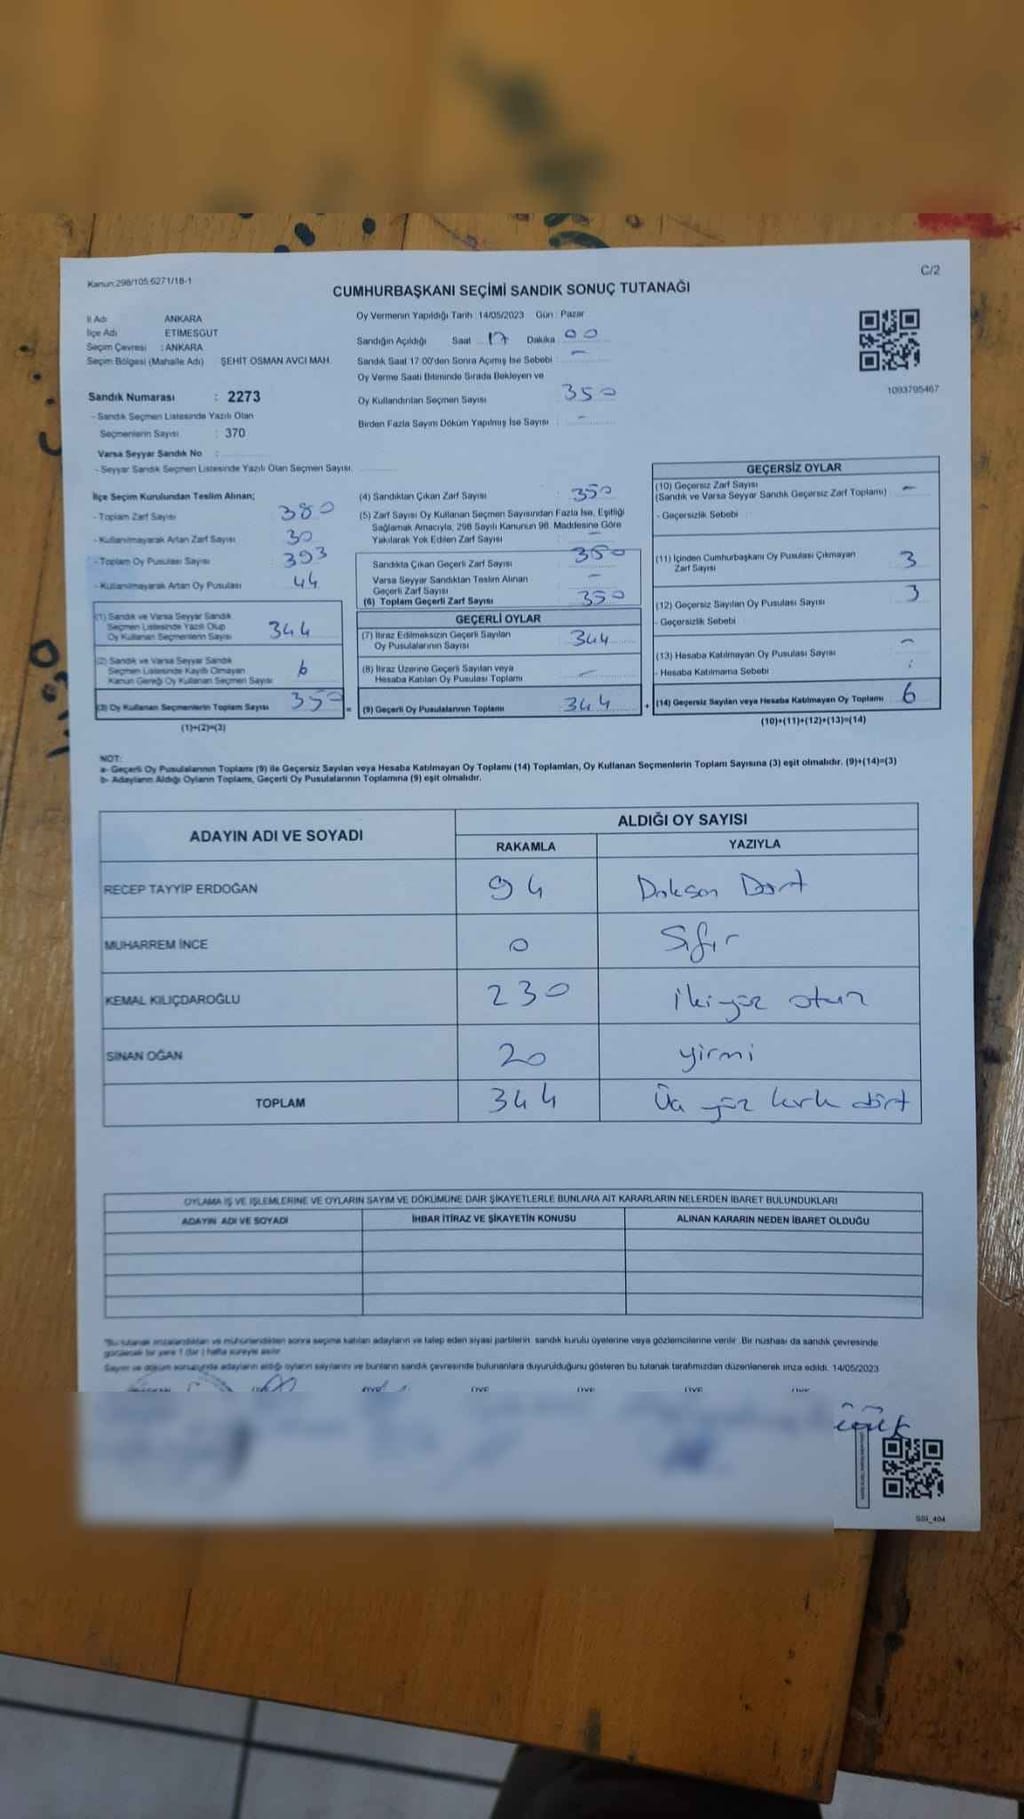 Kanun:298/105-6271/18-1
C/2
CUMHURBAŞKANI SEÇİMİ SANDIK SONUÇ TUTANAĞI
İl Adı ANKARA
İlçe Adı ETİMESGUT
Seçim Çevresi : ANKARA
Seçim Bölgesi (Mahalle Adı) ŞEHİT OSMAN AVCI MAH.
Sandık Numarası : 2273
- Sandık Seçmen Listesinde Yazılı Olan
Seçmenlerin Sayısı : 370
Varsa Seyyar Sandık No :
- Seyyar Sandık Seçmen Listesinde Yazılı Olan Seçmen Sayısı
Oy Vermenin Yapıldığı Tarih : 14/05/2023 Gün : Pazar
Sandığın Açıldığı Saat 17 Dakika 00
Sandık Saat 17.00'den Sonra Açılmış İse Sebebi : -
Oy Verme Saati Bitiminde Sırada Bekleyen ve
Oy Kullandırılan Seçmen Sayısı : 350
Birden Fazla Sayım Döküm Yapılmış İse Sayısı : -
1093795467
İlçe Seçim Kurulundan Teslim Alınan;
- Toplam Zarf Sayısı 380
- Kullanılmayarak Artan Zarf Sayısı 30
- Toplam Oy Pusulası Sayısı 393
- Kullanılmayarak Artan Oy Pusulası 44
(1) Sandık ve Varsa Seyyar Sandık
Seçmen Listesinde Yazılı Olup
Oy Kullanan Seçmenlerin Sayısı 344
(2) Sandık ve Varsa Seyyar Sandık
Seçmen Listesinde Kayıtlı Olmayan
Kanun Gereği Oy Kullanan Seçmen Sayısı 6
(3) Oy Kullanan Seçmenlerin Toplam Sayısı 350
(1)+(2)=(3)
(4) Sandıktan Çıkan Zarf Sayısı 350
(5) Zarf Sayısı Oy Kullanan Seçmen Sayısından Fazla İse, Eşitliği
Sağlamak Amacıyla, 298 Sayılı Kanunun 98. Maddesine Göre
Yakılarak Yok Edilen Zarf Sayısı -
Sandıkta Çıkan Geçerli Zarf Sayısı 350
Varsa Seyyar Sandıktan Teslim Alınan
Geçerli Zarf Sayısı -
(6) Toplam Geçerli Zarf Sayısı 350
GEÇERLİ OYLAR
(7) İtiraz Edilmeksizin Geçerli Sayılan
Oy Pusulalarının Sayısı 344
(8) İtiraz Üzerine Geçerli Sayılan veya
Hesaba Katılan Oy Pusulası Toplamı -
= (9) Geçerli Oy Pusulalarının Toplamı 344
GEÇERSİZ OYLAR
(10) Geçersiz Zarf Sayısı
(Sandık ve Varsa Seyyar Sandık Geçersiz Zarf Toplamı) -
- Geçersizlik Sebebi
(11) İçinden Cumhurbaşkanı Oy Pusulası Çıkmayan
Zarf Sayısı 3
(12) Geçersiz Sayılan Oy Pusulası Sayısı 3
- Geçersizlik Sebebi
(13) Hesaba Katılmayan Oy Pusulası Sayısı -
- Hesaba Katılmama Sebebi :
+ (14) Geçersiz Sayılan veya Hesaba Katılmayan Oy Toplamı 6
(10)+(11)+(12)+(13)=(14)
NOT:
a- Geçerli Oy Pusulalarının Toplamı (9) ile Geçersiz Sayılan veya Hesaba Katılmayan Oy Toplamı (14) Toplamları, Oy Kullanan Seçmenlerin Toplam Sayısına (3) eşit olmalıdır. (9)+(14)=(3)
b- Adayların Aldığı Oyların Toplamı, Geçerli Oy Pusulalarının Toplamına (9) eşit olmalıdır.
ADAYIN ADI VE SOYADI ALDIĞI OY SAYISI
RAKAMLA YAZIYLA
RECEP TAYYİP ERDOĞAN 94 Doksan Dört
MUHARREM İNCE 0 Sıfır
KEMAL KILIÇDAROĞLU 230 ikiyüz otuz
SİNAN OĞAN 20 yirmi
TOPLAM 344 Üç yüz kırk dört
OYLAMA İŞ VE İŞLEMLERİNE VE OYLARIN SAYIM VE DÖKÜMÜNE DAİR ŞİKAYETLERLE BUNLARA AİT KARARLARIN NELERDEN İBARET BULUNDUKLARI
ADAYIN ADI VE SOYADI İHBAR İTİRAZ VE ŞİKAYETİN KONUSU ALINAN KARARIN NEDEN İBARET OLDUĞU
*Bu tutanak imzalandıktan ve mühürlendikten sonra seçime katılan adayların ve talep eden siyasi partilerin sandık kurulu üyelerine veya gözlemcilerine verilir. Bir nüshası da sandık çevresinde
görülecek bir yere 1 (bir) hafta süreyle asılır.
Sayım ve döküm sonucunda adayların aldığı oyların sayılarını ve bunların sandık çevresinde bulunanlara duyurulduğunu gösteren bu tutanak tarafımızdan düzenlenerek imza edildi. 14/05/2023